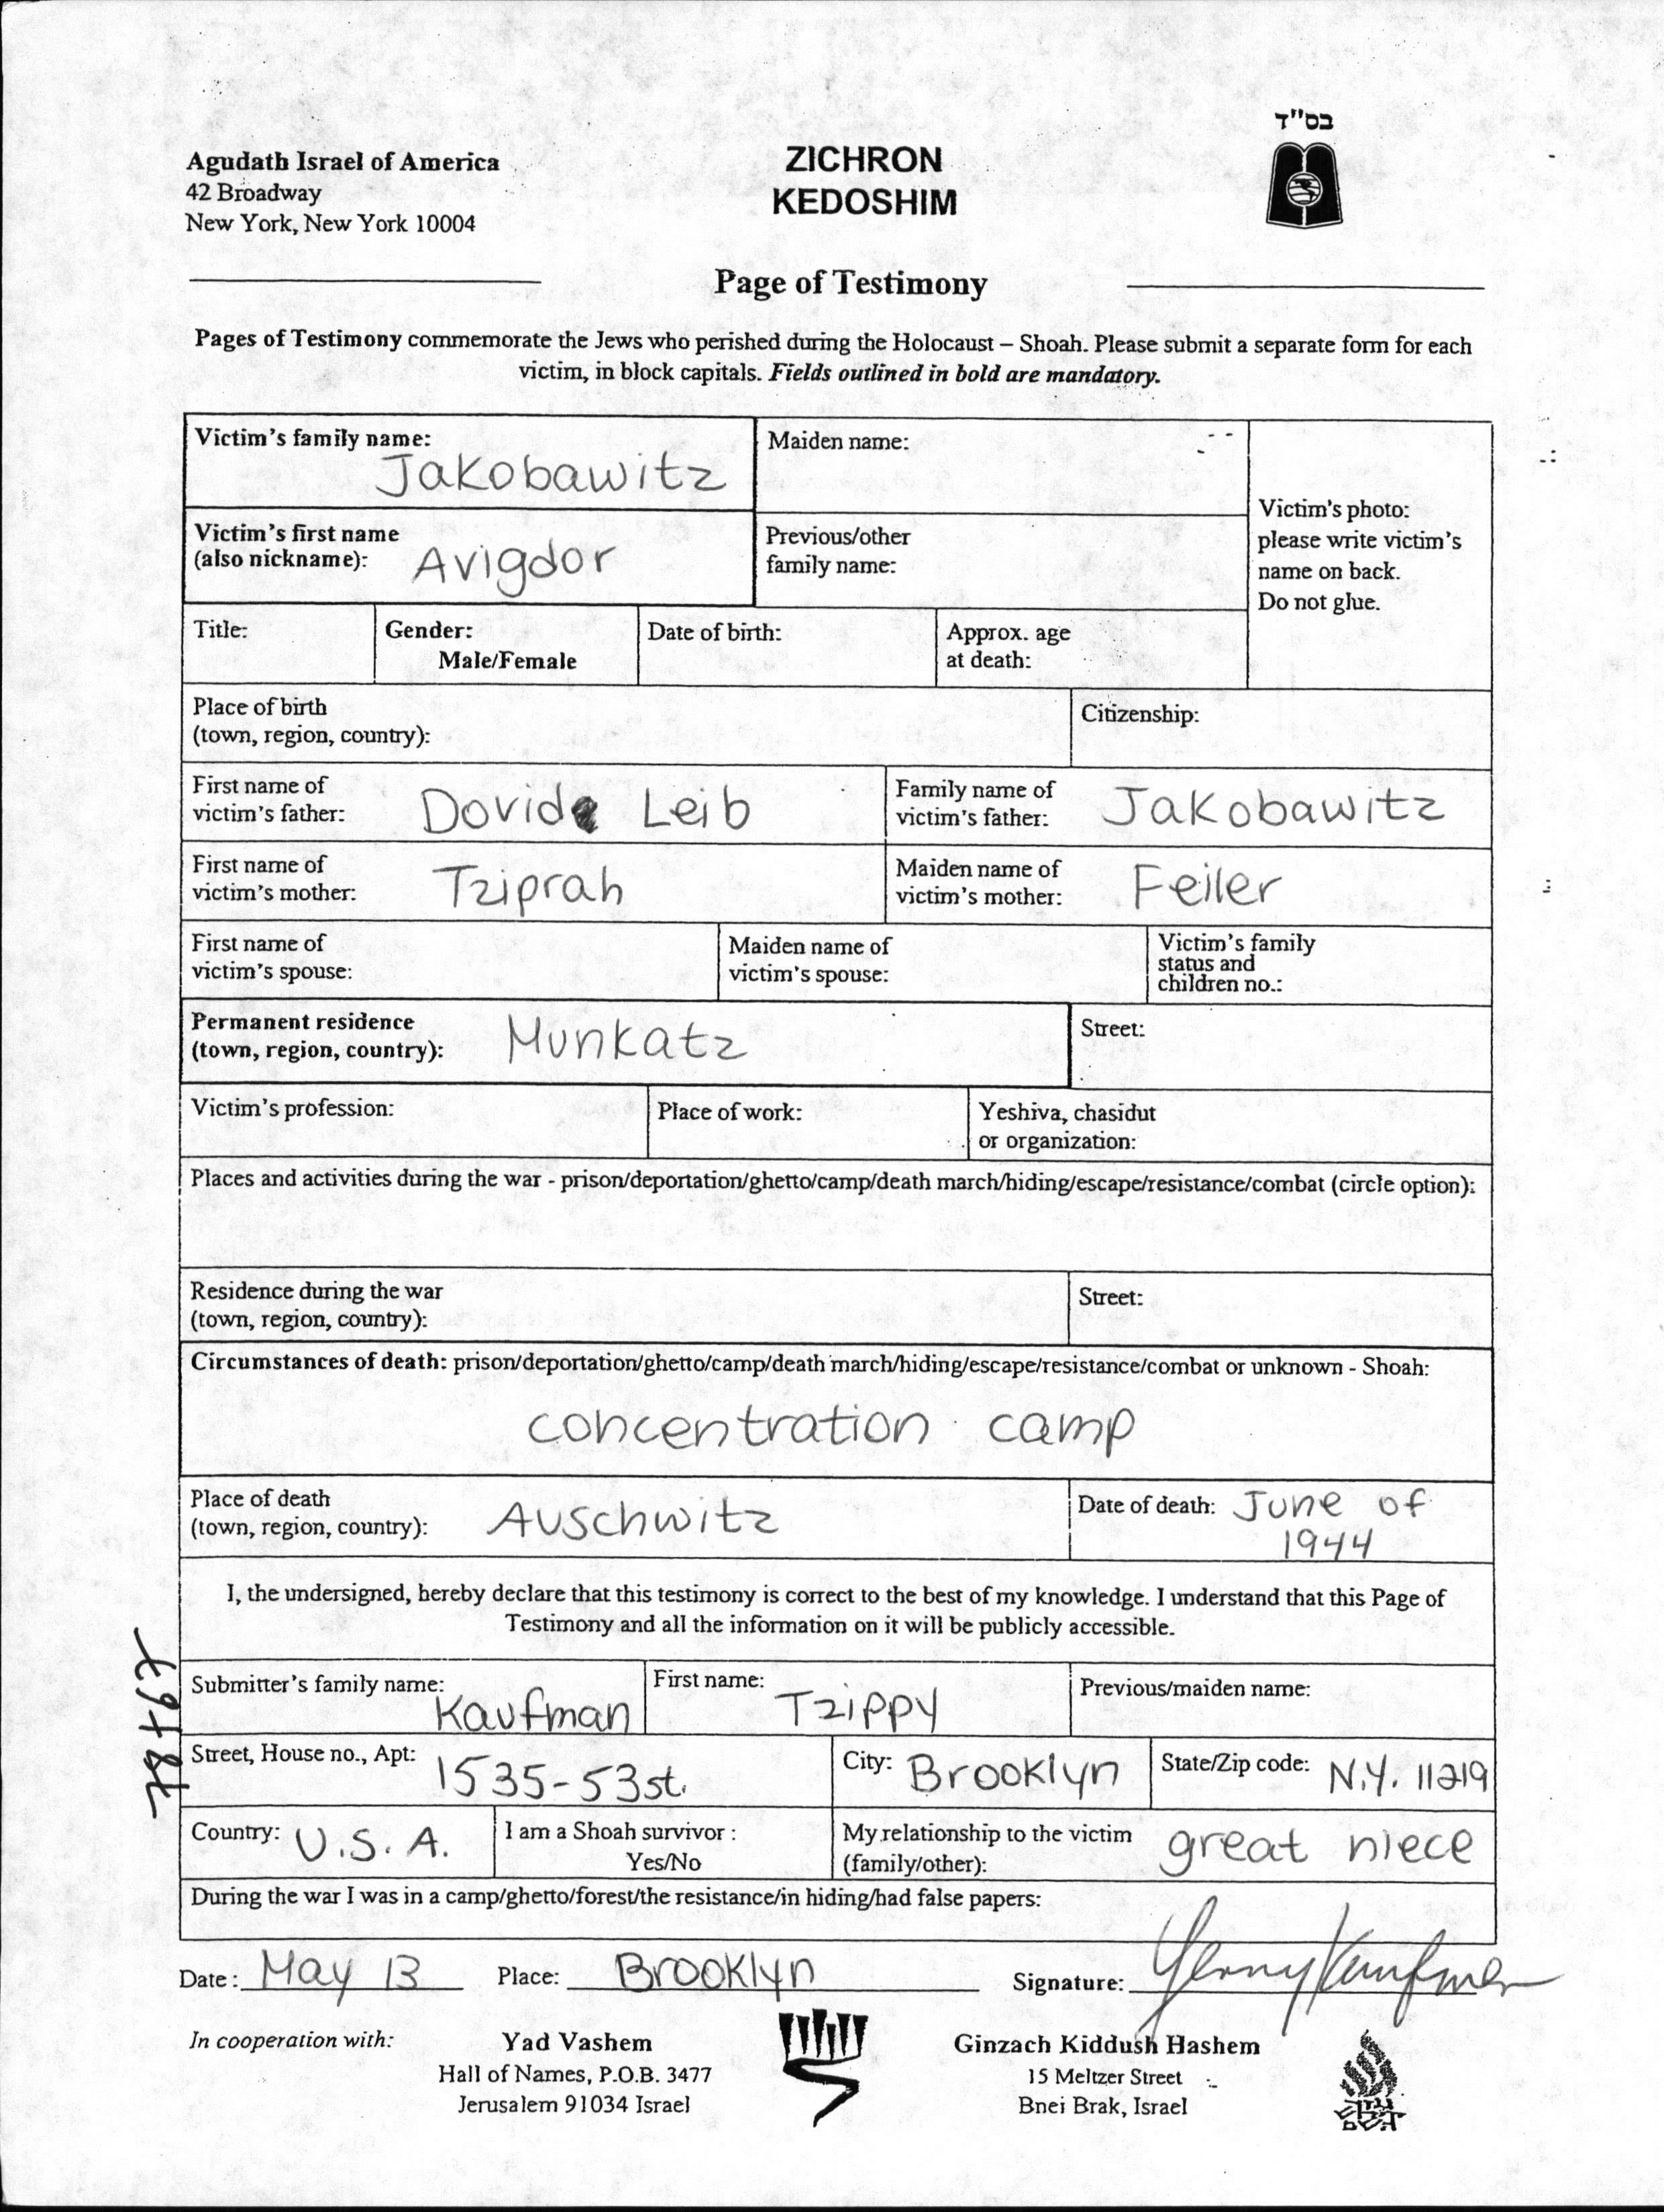 בס"ד
Agudath Israel of America
42 Broadway
New York, New York 10004
ZICHRON
KEDOSHIM
Page of Testimony
Pages of Testimony commemorate the Jews who perished during the Holocaust – Shoah. Please submit a separate form for each
victim, in block capitals. Fields outlined in bold are mandatory.
Victim's family name:
Jakobawitz
Maiden name:
Victim's photo:
please write victim's
name on back.
Do not glue.
Victim's first name
(also nickname): Avigdor
Previous/other
family name:
Title:
Gender:
Male/Female
Date of birth:
Approx. age
at death:
Place of birth
(town, region, country):
Citizenship:
First name of
victim's father: Dovid Leib
Family name of
victim's father: Jakobawitz
First name of
victim's mother: Tziprah
Maiden name of
victim's mother: Feiler
First name of
victim's spouse:
Maiden name of
victim's spouse:
Victim's family
status and
children no.:
Permanent residence
(town, region, country): Munkatz
Street:
Victim's profession:
Place of work:
Yeshiva, chasidut
or organization:
Places and activities during the war - prison/deportation/ghetto/camp/death march/hiding/escape/resistance/combat (circle option):
Residence during the war
(town, region, country):
Street:
Circumstances of death: prison/deportation/ghetto/camp/death march/hiding/escape/resistance/combat or unknown - Shoah:
concentration camp
Place of death
(town, region, country): Auschwitz
Date of death: June of
1944
I, the undersigned, hereby declare that this testimony is correct to the best of my knowledge. I understand that this Page of
Testimony and all the information on it will be publicly accessible.
Submitter's family name:
Kaufman
First name:
Tzippy
Previous/maiden name:
Street, House no., Apt: 1535-53st.
City: Brooklyn
State/Zip code: N.Y. 11219
Country: U.S.A.
I am a Shoah survivor :
Yes/No
My relationship to the victim
(family/other): great niece
During the war I was in a camp/ghetto/forest/the resistance/in hiding/had false papers:
Date: May 13
Place: Brooklyn
Signature:
In cooperation with:
Yad Vashem
Hall of Names, P.O.B. 3477
Jerusalem 91034 Israel
Ginzach Kiddush Hashem
15 Meltzer Street
Bnei Brak, Israel